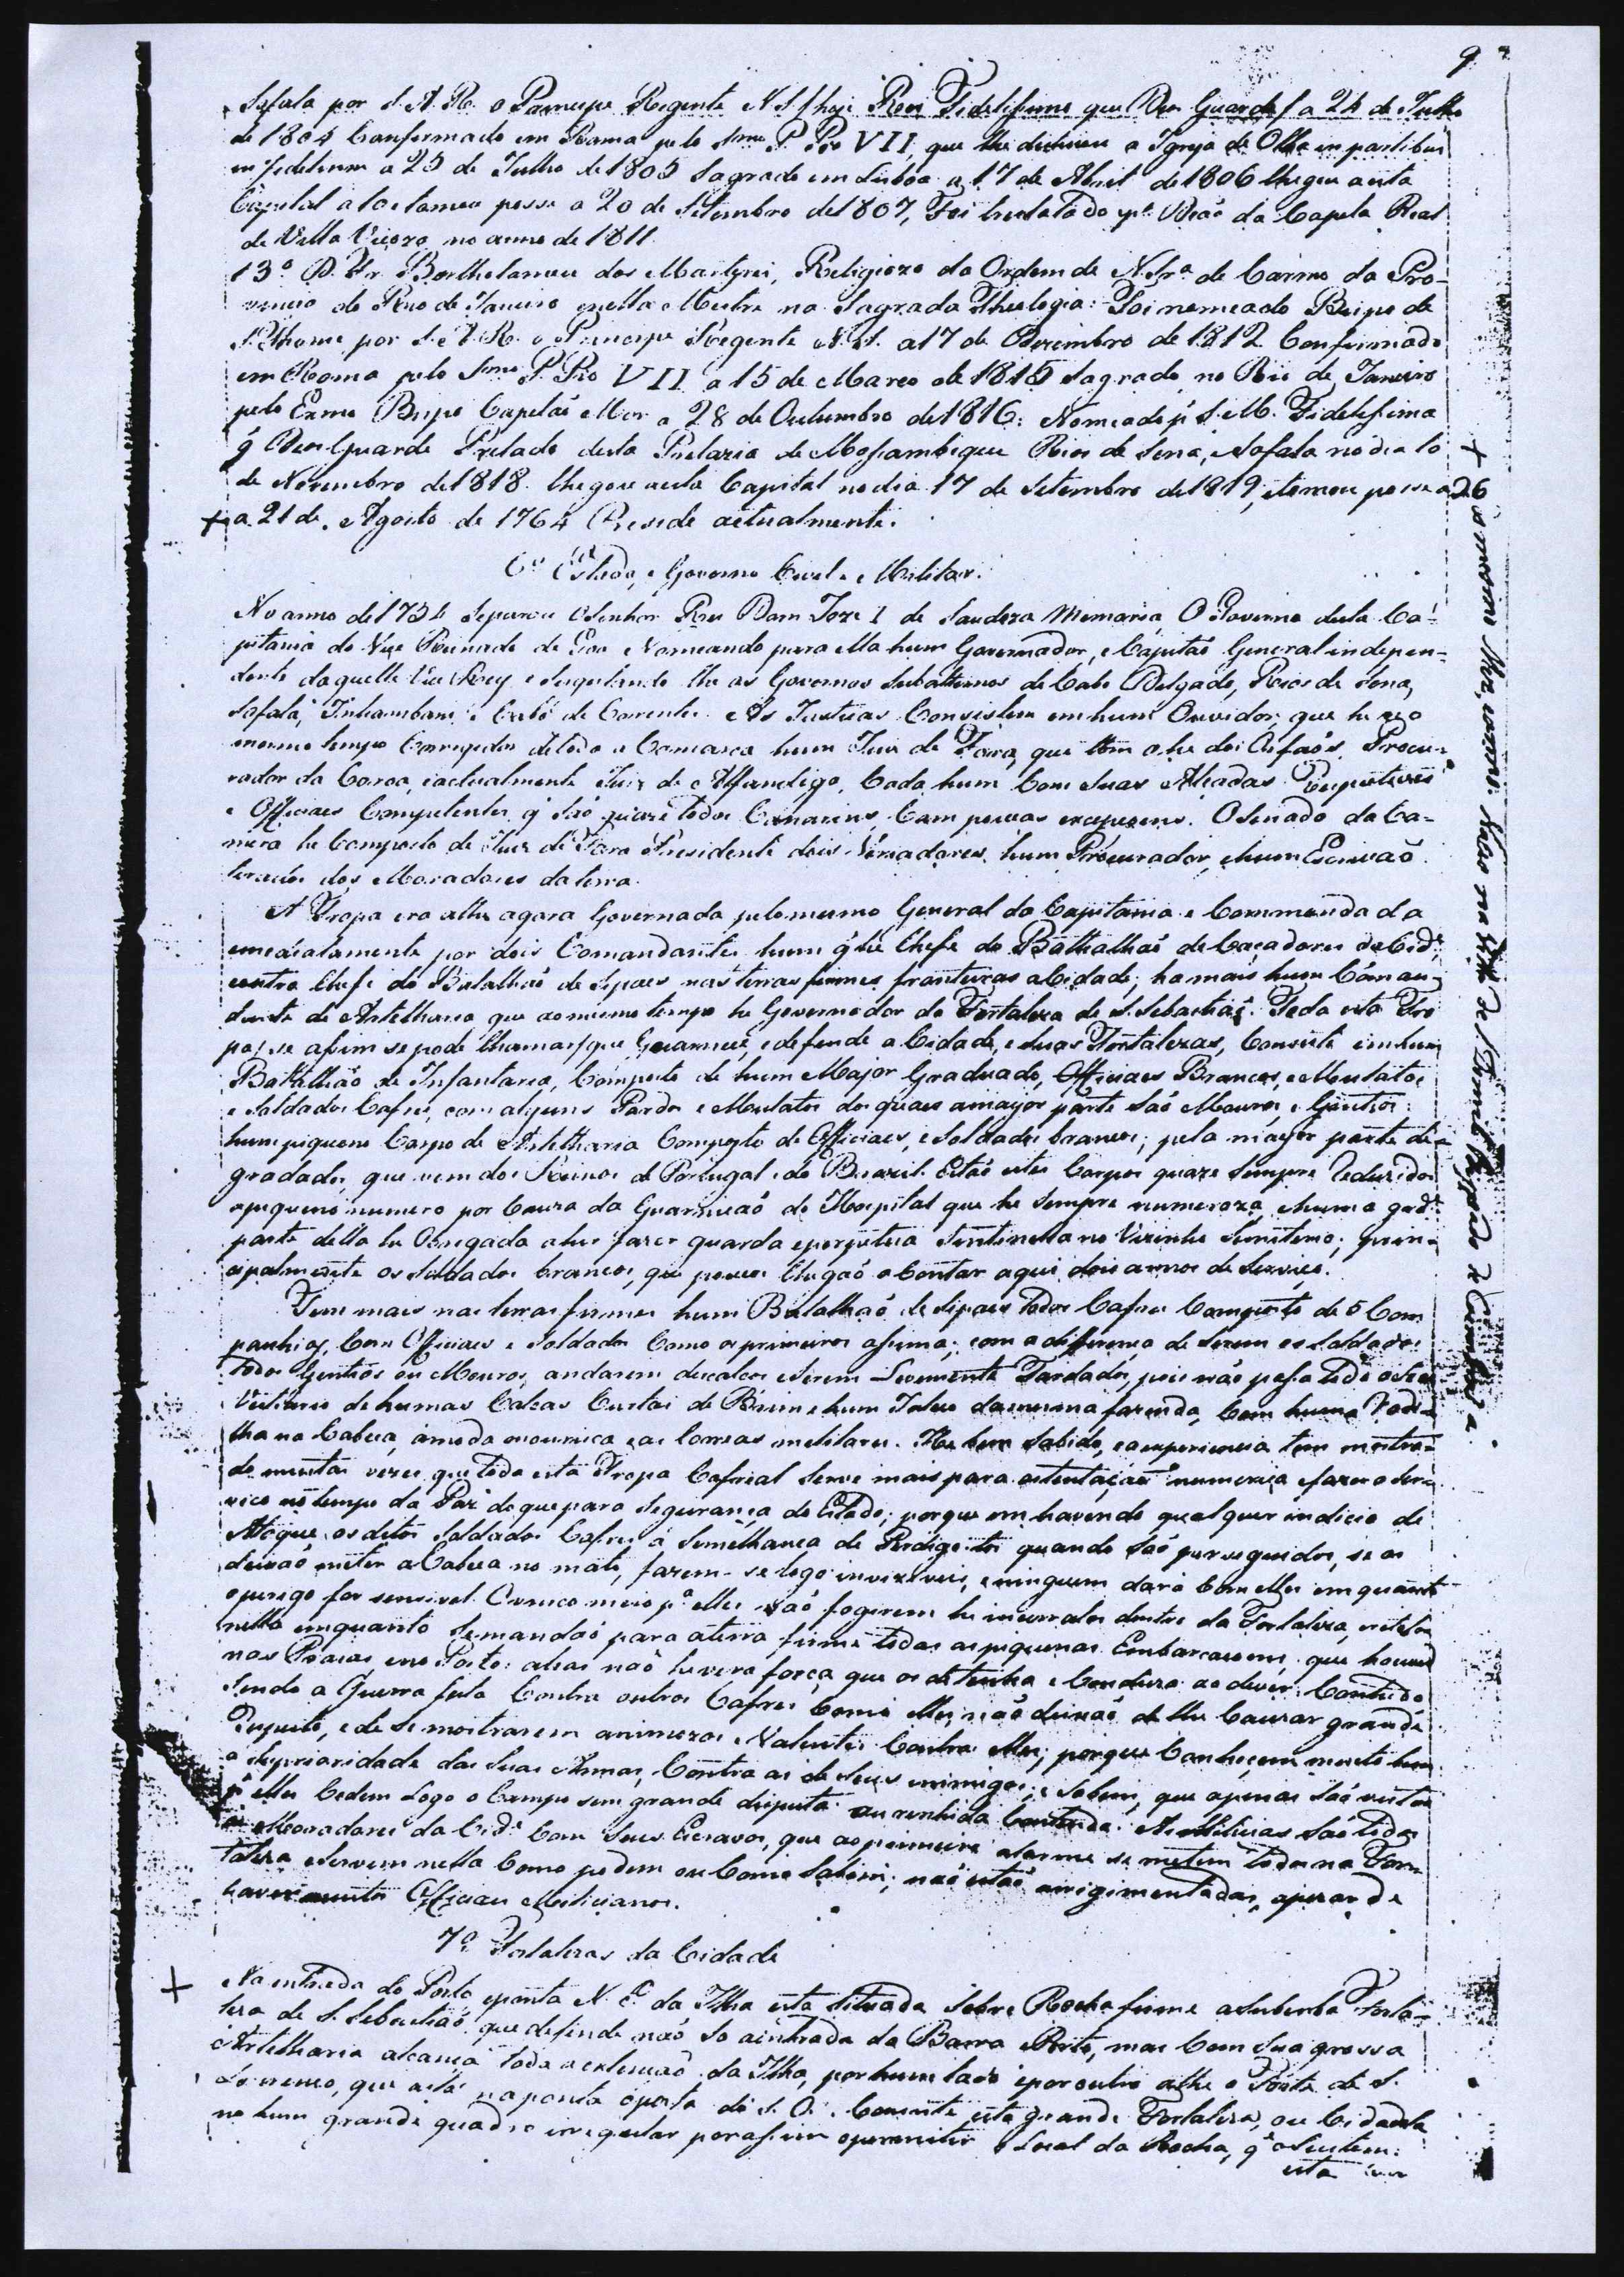 9
Sofala por S. A. R. o Principe Regente N. S. (hoje Rey Fidelissimo que Deos Guarde) a 24 de Julho
de 1804 Confirmado em Roma pelo Smo. P. Pio VII, que lhe a Igreja de Olba in partibus
infidelium a 25 de Julho de 1805 Sagrado em Lisboa a 17 de Abril de 1806 Chegou a esta
Capital a 10 e tomou posse a 20 de Setembro de 1807, Foi trasladado pa. Deão da Capela Real
de Villa Viçoza no anno de 1811
13º D. Fr. Bartholameu dos Martyres, Religiozo da Ordem de N. Sra. do Carmo da Pro-
vincia do Rio de Janeiro e nella Mestre na Sagrada Theologia: Foi nomeado Bispo de
S. Thome por S. A. R. o Principe Regente N. S. a 17 de Dezembro de 1812 Confirmado
em Roma pelo Smo. P. Pio VII a 15 de Março de 1815 Sagrado no Rio de Janeiro
pelo Exmo. Bispo Capelaõ Mor a 28 de Outumbro de 1816: Nomeado pr. S. M. Fidelissima
q̃ Deos Guarde Prelado desta Prelazia de Mossambique Rios de Sena, e Sofala no dia 10
de Novembro de 1818 Chegou a esta Capital no dia 17 de Setembro de 1819, e tomou posse a 26
+ a 21 de Agosto de 1764 Preside actualmente.
+ do mesmo Mez, como
6º Estado, e Governo Civil e Militar.
No anno de 1752 Separou o Senhor Rei Dom Joze I de Saudoza Memoria, O Governo desta Ca-
pitania do Vice Reinado de Goa Nomeando para ella hum Governador, e Capitaõ General indepen-
dente daquelle Vice Rey e Sugeitando lhe os Governos Subalternos de Cabo Delgado, Rios de Sena,
Sofala, Inhambane, e Cabo de Correntes. As Justiças Consistem em hum Ouvidor, que he ao
mesmo tempo Corregedor de toda a Comarca hum Juiz de Fora, que tãm o he dos Orfaõs, Procu-
rador da Coroa, e actualmente Juiz de Alfandega, Cada hum Com Suas Alçadas Respectivas
e Officiaes Competentes, q̃ Saõ quaze todos Canarins, Com poucas excepçoens. O Senado da Ca-
mera he Composto de Juiz de Fora Presidente dois Veriadores, hum Procurador, e hum Escrivaõ
tirados dos Moradores da terra.
A Tropa era athe agora Governada pelo mesmo General da Capitania e Commandada
emediatamente por dois Comandantes hum q̃ he Chefe do Bathalhaõ de Caçadores da Cide.,
e outro Chefe do Batalhaõ de Sipaes nas terras firmes fronteiras a Cidade; ha mais hum Coman-
dante de Artelharia que ao mesmo tempo he Governador da Fortaleza de S. Sebastiaõ. Toda esta Tro
pa (se assim se pode Chamar) que Guarnece, e defende a Cidade, e suas Fortalezas, Consiste em hum
Batalhão de Infantaria, Composto de hum Major Graduado, Officiaes Brancos, e Mulatos
e Soldados Cafres, com alguns Pardos e Mulatos dos quaes a mayor parte Saõ Mouros, e Gentios:
hum piqueno Corpo de Artelharia Composto de Officiaes, e Soldados brancos; pela mayor parte de-
gradados, que vem dos Reinos de Portugal e do Brazil. Estaõ estes Corpos quaze Sempre reduzidos
a piqueno numero por Cauza da Guarniçaõ do Hospital que he Sempre numeroza, e huma gde.
parte della he Obrigada a hir fazer guarda e perpetua Sentinella no Vizinho Simiterio; prin-
cipalmente os Soldados brancos, que poucos Chegaõ a Contar aqui dois annos de Serviço.
Tem mais nas terras firmes hum Batalhaõ de Sipaes todos Cafres Composto de 5 Com
panhias, Com Officiaes e Soldados Como os primeiros assima; com a differença de Serem os Soldados
todos Gentios ou Mouros, andarem descalsos e Serem Levemente Fardados, pois não passa todo o Seu
Vistuario de humas Calsas Curtas de Brim e hum Jaleco da mesma fazenda, Com huma Rodi-
lha na Cabeça, á moda mourisca, e as Correas militares. He bem Sabido, e a experiencia tem mostra-
do muitas vezes que toda esta Tropa Cafreal Serve mais para ostentaçaõ numerica e fazer o Ser-
viço no tempo da Paz do que para Segurança do Estado; porque em havendo qualquer indicio de
Ataque, os ditos Soldados Cafres á Semilhança de Perdigotos quando Saõ perseguidos, se os
deixaõ meter a Cabeça no mato, fazem-se logo inviziveis, e ninguem dará Com elles em quanto
o perigo for sensivel. O unico meio pa. elles naõ fogirem he incerralos dentro da Fortaleza, e
nella emquanto Se mandaõ para a terra firme todas as piquenas Embarcaçoens, que houver
nas Praias e no Porto: alias naõ havera força que os detenha e Conduza ao dever. Comtudo
Sendo a Guerra feita Contra outros Cafres Como elles, naõ deixaõ de lhe Cauzar grande
Respeito, e de Se mostrarem animozos e Valentes Contra elles; porque Conhecem muito bem
a Superioridade das Suas Armas, Contra as de Seus inimigos; e Sabem, que apenas Saõ vistos
elles Cedem Logo o Campo sem grande disputa ou renhida Contenda. As Milicias Saõ todos
os Moradores da Cide. Com Seus Escravos, que ao primeiro alarme se metem todos na For-
taleza e Servem nella Como podem ou Como Sabem; naõ estaõ arrigimentadas, apezar de
haver muitos Officiaes Milicianos.
7º Fortalezas da Cidade
+ Na entrada do Porto e ponta N. E. da Ilha esta Situada Sobre Rocha firme a Suberba Forta-
leza de S. Sebastiaõ que defende naõ So a entrada da Barra e Porto, mas Com Sua grossa
Artelharia alcança toda a extensaõ da Ilha, por hum lado e por outro athe o Forte de S.
Lourenço, que está na ponta oposta de S. O. Consiste esta grande Fortaleza, ou Cidadela
no hum grande quadro irregular por assim o permitir o Local da Rocha, q̃ a Sustem:
esta